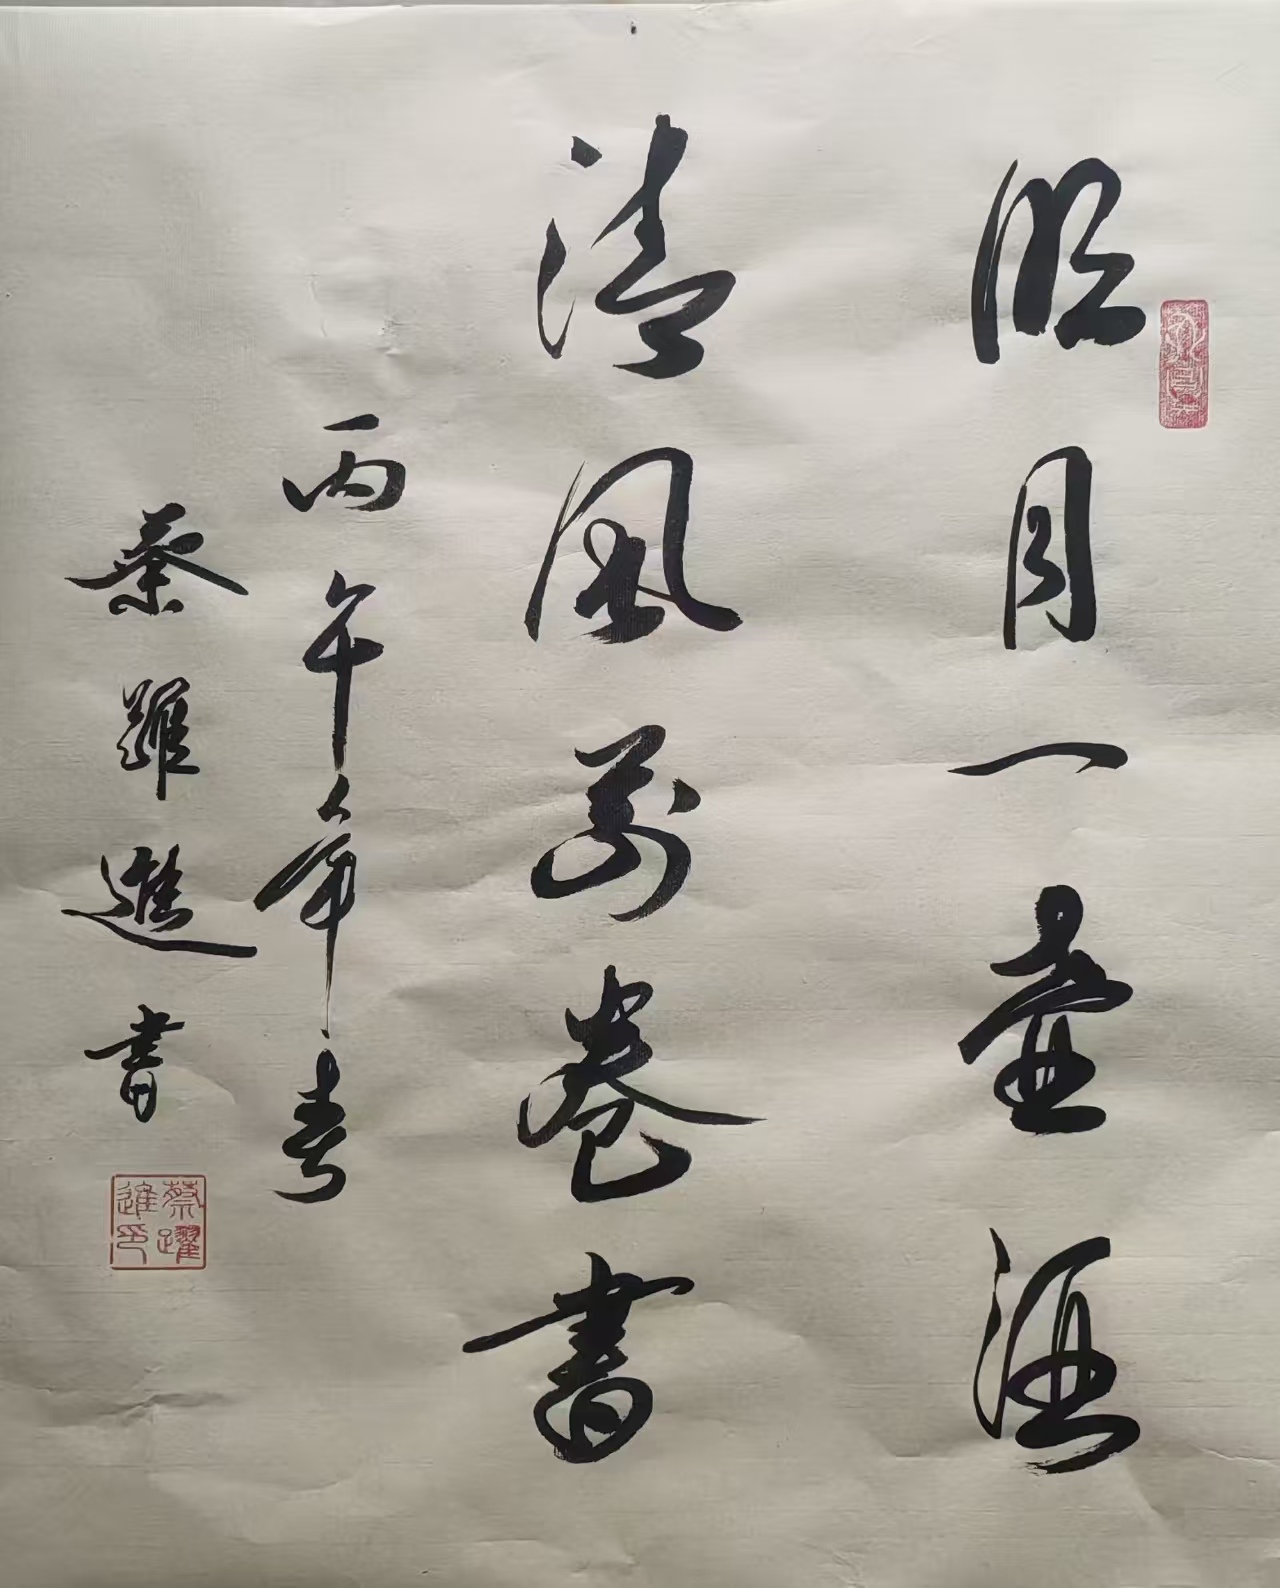 明月一壺酒
清風萬卷書
丙午年春
蔡躍進書
蔡躍
進印